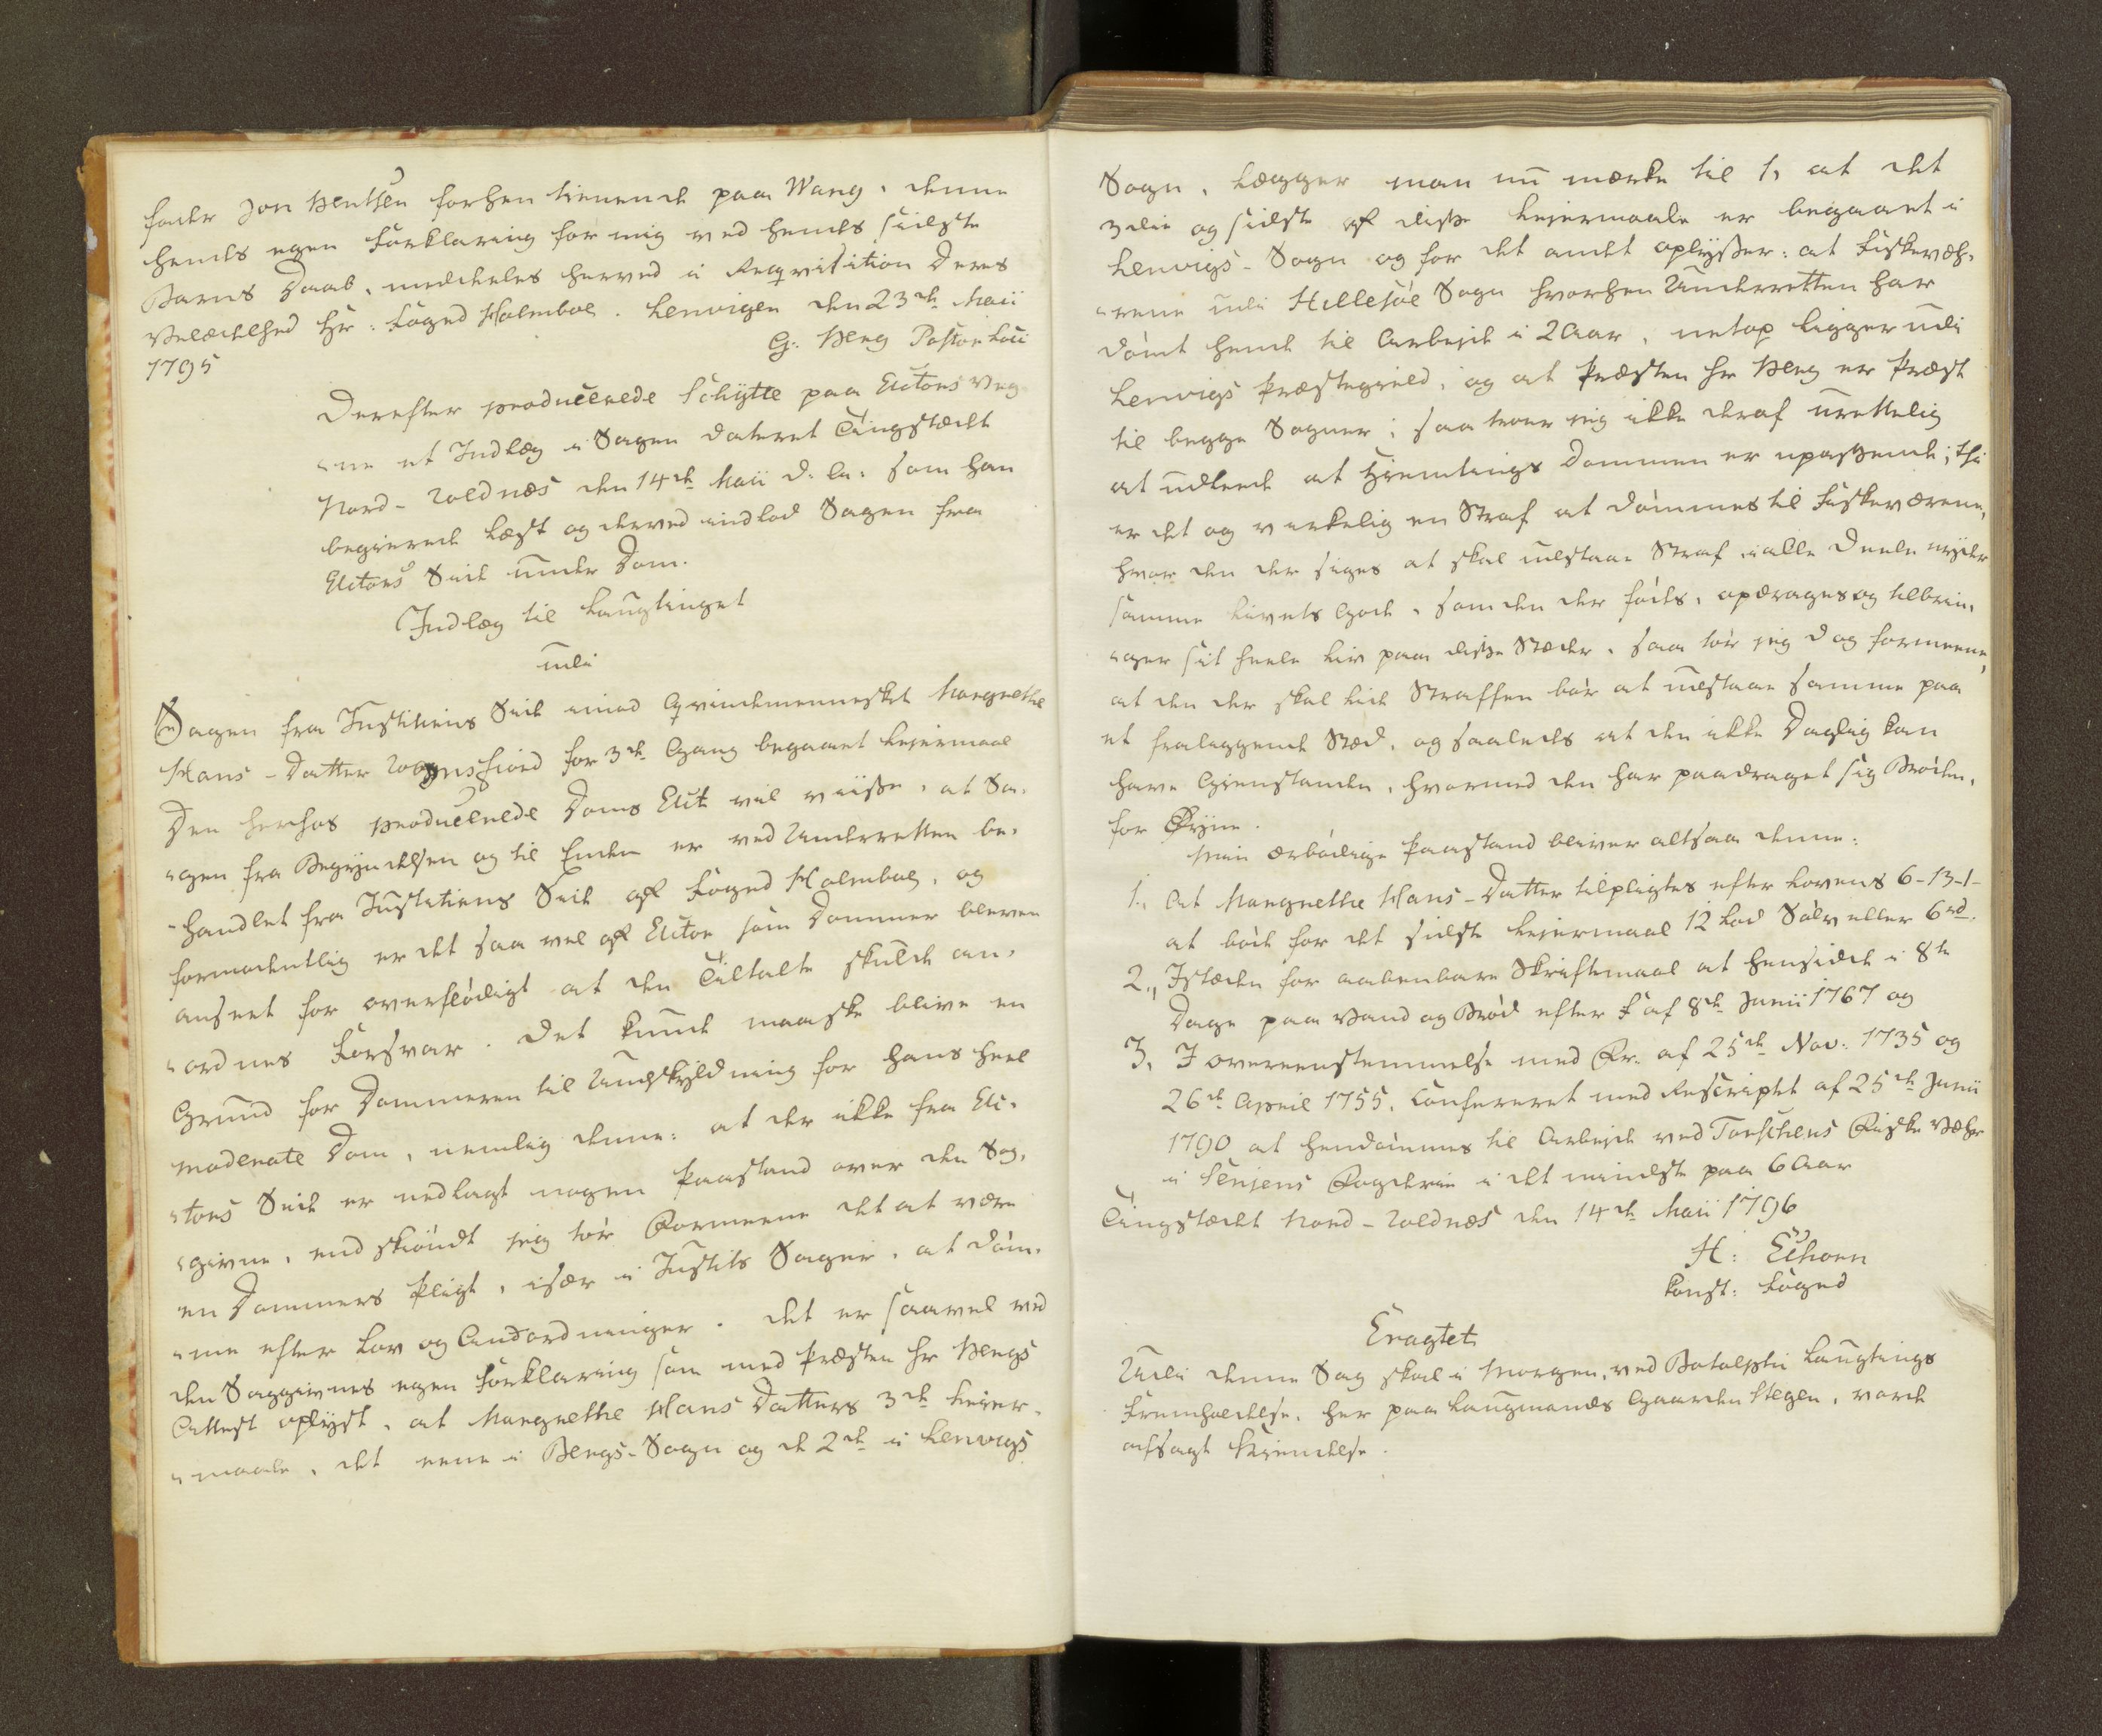 fader Jon Bentsen forhen tienende paa Wang, denne
hendes egen Forklaring for mig ved hendes sidste
Barns Daab, meddeles herved i Reqvisition Deres
Velædelhed Hr: Foged Holmboe. Lenvigen den 23de Maii
1795
G: Berg Pastor Loci
Derefter producerede Schytte paa Actors Veg-
"ne et Indlæg i Sagen dateret Tingstædet
Nord-Roldnæs den 14de Maii d. A: som han
begierede læst og derved indlod Sagen fra
Actors Side under Dom.
Indlæg til Laugtinget
udi
Sagen fra Justitiens Side imod Qvindemennesket Margrethe
Hans-Datter for 3de Gang begaaet Leiermaal
Den herhos producerede Doms Act vil viise, at Sa-
"gen fra Begyndelsen og til Enden er ved Underretten be-
"handlet fra Justitiens Side af Foged Holmboe, og
formodentlig er det saa vel af Actor som Dommer bleven
anseet for overflødigt at den Tiltalte skulde an-
"ordnes Forsvar. Det kunde maaske blive en
Grund for Dommeren til Undskyldning for hans heel
moderate Dom, nemlig denne: at der ikke fra Ac-
"tors Side er nedlagt nogen Paastand over den Sag-
"givne, endskiøndt jeg tør Formeene det at være
en Dommers Pligt, især i Justits Sager, at døm-
"me efter Lov og Andordninger. Det er saavel ved
den Saggivnes egen Forklaring som med Præsten Hr Bergs
Attest oplyst, at Margrethe Hans Datters 3de Leier-
"maale, det eene i Bergs-Sogn og de 2de i Lenvigs
Sogn. Lægger man nu mærke til 1, at det
3die og sidste af disse Leiermaale er begaaet i
Lenvigs-Sogn og for det andet oplyser: at Fiskevæh-
"rene udi Hillesøe Sogn hvorhen Underretten har
dømt hende til Arbejde i 2 Aar, netop ligger udi
Lenvigs Præstegield, og at Præsten Hr Berg er Præst
til begge Sogner; saa troer jeg ikke deraf urettelig
at udleede at Hiemtings Dommen er upassende; thi
er det og virkelig en Straf at dømmes til Fiskeværene,
hvor den der siges at skal udstaae Straf i alle Deele nyder
samme Livets Gode, som den der føds, opdrages og tilbrin-
"ger sit heele Liv paa disse Stæder, saa tør jeg dog formeene,
at den der skal lide Straffen bør at udstaae samme paa
et fraliggende Stæd, og saaledes at den ikke Daglig kan
have Gienstanden, hvormed den har paadraget sig Brøden,
for Øyne.
Min ærbødige Paastand bliver altsaa denne:
1., At Margrethe Hans-Datter tilpligtes efter Lovens 6-13-1-
at bøde for det sidste Leiermaal 12 Lod Sølv eller 6 rd.
2., Istæden for aabenbare Skriftemaal at hensidde i 8te
Dage paa Vand og Brød efter F af 8de Junii 1767 og
3, I overeenstemmelse med Fr. af 25de Nov: 1735 og
26de April 1755, Confereret med Rescriptet af 25de Junii
1790 at hendømmes til Arbejde ved Torschens Fiske Væhr
i Senjens Fogderie i det mindste paa 6 Aar
Tingstædet Nord-Roldnæs den 14de Maii 1796
H: Echorn
konst: Foged
Eragtet
Udi denne Sag skal i Morgen, ved Botolphi Laugtings
Fremholdelse, her paa Laugmands Gaarden Stegen, vorde
afsagt Kiendelse.